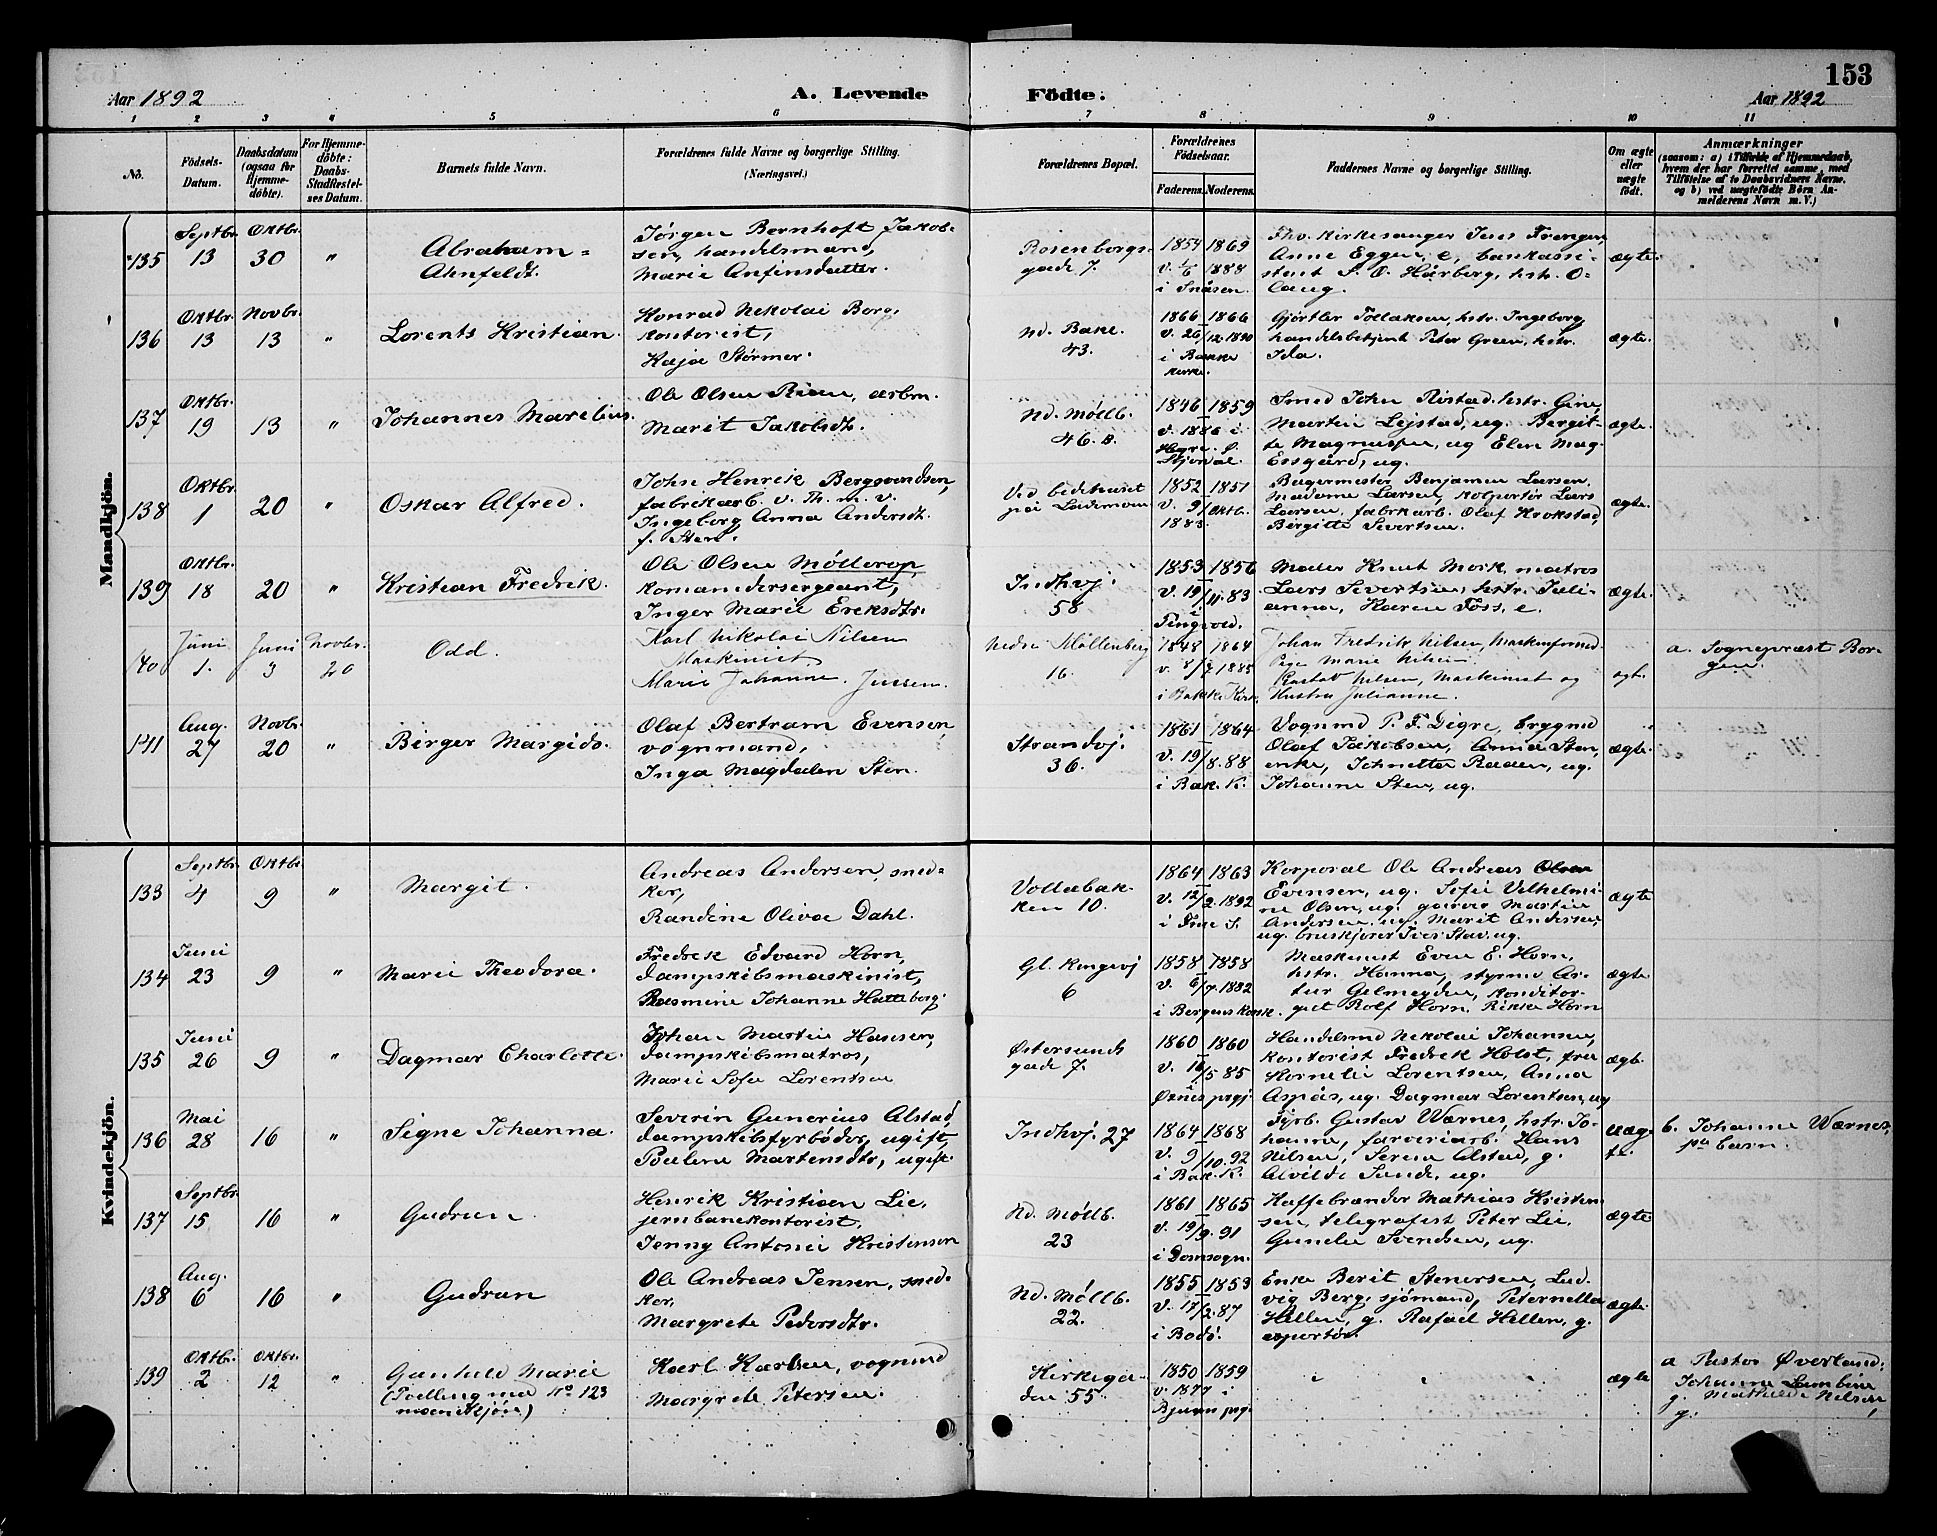 153
Aar 1892
A. Levende
Födte.
Aar 1892
1 2 3 4 5 6 7 8 9 10 11
No.
Födsels-
Datum.
Daabsdatum
(ogsaa for
Hjemme-
döbte).
For Hjemme-
döbte:
Daabs-
Stadfæstel-
ses Datum.
Barnets fulde Navn.
Forældrenes fulde Navne og borgerlige Stilling.
(Næringsvei.)
Forældrenes Bopæl.
Forældrenes
Födselsaar.
Faderens. Moderens.
Faddernes Navne og borgerlige Stilling.
Om ægte
eller
uægte
födt.
Anmærkninger
(saasom: a) i Tilfælde af Hjemmedaab,
hvem der har forrettet samme, med
Tilföielse af to Daabsvidners Navne,
og b) ved uægtefödte Börn An-
melderens Navn m. V.)
Mandkjön.
135
Septbr.
13
Oktbr.
30
"
Abraham=
Ahnfeldt.
Jørgen Bernhoft Jakob-
sen, handelsmand,
Marie Anfinsdatter.
Rosenborgs-
gade 7.
1854 1869
v. 1/6 1888
i Snåsen.
Fhv. kirkesanger Jens Frengen,
Anne Eggen, e, bankassi-
stent S. O. Hårberg, hstr. O-
laug.
ægte.
136
Oktbr.
13
Novbr.
13
"
Lorents Kristian.
Konrad Nikolai Borg,
kontorist,
Kaja Størmer.
Nd. Bakl.
43.
1866 1866
v. 26/12 1890
i Bakke
kirke.
Gjørtler Tollaksen, hstr. Ingeborg
handelsbetjent Peter Green, hstr.
Ida.
ægte.
137
Oktbr.
19
13
"
Johannes Marelius.
Ole Olsen Rian, arbm.
Marit Jakobsdt.
Nd. Møllb.
46.B.
1846 1859
v. 1886 i
Hegre. S.
Stjordal.
Smed John Ristad. hstr. Gine,
Martin Lejstad, ug. Bergit-
te Magnussen, ug Elen Mag.
Essgård, ug.
ægte.
138
Oktbr.
1
20
"
Oskar Alfred.
John Henrik Bergsvendsen,
fabrikarb. v. Th. m. v.
Ingeborg Anna Andersdt.
f. Sten.
Ved bedehuset
på Lademoen
1852 1851
v. 9/Oktb.
1883.
Bagermester Benjamin Larsen.
Madame Larsen, kolportør Lars
Larsen, fabrkarb. Olaf Krokstad,
Birgitte Sivertsen.
ægte.
139
Oktbr.
18
20
"
Kristian Fredrik.
Ole Olsen Møllerop
komandersergeant,
Inger Marie Eriksdtr.
Indhvj.
58
1853 1856
v. 19/11.83
i
Tingvold.
Maler Knut Mork, matros
Lars Sivertsen, hstr. Juli-
anna, Karen Foss, e.
ægte.
140
Juni
1.
Juni
3
Novbr.
20
Odd.
Karl Nikolai Nilsen
Maskinist
Marie Johanne Jensen.
Nedre Møllenberg
16.
1848 1864
v. 8/7 1885
i Bakke Kirke.
Johan Fredrik Nilsen, Maskinformd.
Pige Marie Nilsen
Nilsen, Maskinist og
Hustru Julianne.
ægt.
a. Sogneprest Bor-
gen.
141
Aug.
27
Novbr.
20
"
Birger Margido.
Olaf Bertram Evensen,
vognmand,
Inga Magdalen Sten.
Strandvj.
36.
1861 1864
v. 19/8.88
i Bak. K.
Vognmd P. F. Digre, brygmd
Olaf Jakobsen, Anna Sten,
enke, Johnetta Raaen, ug.
Johanne Sten, ug.
ægte.
Kvindekjön.
133
Septbr.
4
Oktbr.
9
"
Margit.
Andreas Andersen, sned-
ker,
Randine Olivae Dahl.
Vollabak-
ken 10.
1864 1863
v. 12/2.1892
i Frue S.
Korporal Ole Andreas Olsen
Evensen, ug. Sofie Vilhelmi-
ne Olsen, ug. garver Martin
Andersen, ug. Marit Andersen,
ug. bruskjører Iver Stav. ug.
ægte
134
Juni
23
9
"
Marie Theodora.
Fredrik Edvard Horn,
dampskibsmaskinist,
Rasmine Johanne Hatteberg.
Gl. Kongevj
6
1858 1858
v. 6/7.1882
i Bergens korsk.
Maskinist Even E. Horn,
hstr. Hanna, styrmd Ar-
tur Gilmeyden, konditor-
gut Rolf Horn, Rikka Horn
ægte.
135
Juni
26
9
"
Dagmar Charlotte.
Johan Martin Hansen,
dampskibsmatros,
Marie Sofie Lorentsen
Østersunds
gade 7.
1860 1860
v. 16/5 85
i
Øxnes prgj.
Handelsmd Nikolai Johansen,
kontorist Fredrik Holst, fru
Kornelie Lorentsen, Anna
Aspås, ug. Dagmar Lorentsen, ug
ægt.
136
Mai
28
16
"
Signe Johanna.
Severin Gunerius Alstad,
dampskibsfyrbøder, ugift,
Pauline Martensdtr, ugift.
Indhvj. 27
1864 1868
v. 9/10.92
i Bak. K.
Fyrb. Gustav Wærnes, hstr. Jo-
hanne, farveriarb. Hans
Nilsen, Serine Alstad, g.
Alvilde Sunde, ug.
uæg-
te.
b. Johanne Wærnes,
på barn.
137
Septbr.
15
16
"
Gudrun.
Henrik Kristian Lie,
jernbanekontorist,
Jenny Antonie Kristensen
Nd. Møllb.
23
1861 1865
v. 19/9.91
i Domsogn.
Kaffebrænder Mathias Kristen-
sen, telegrafist Peter Lie,
Gunelie Svendsen, ug.
ægte
138
Aug.
6
16
"
Gudrun
Ole Andreas Jensen, sned-
ker,
Margrete Pedersdtr.
Nd. Møllb.
22.
1855 1853
v. 17/2.87
i Bodö.
Enke Berit Stenersen, Lud-
vig Berg, sjømand, Peternella
Hellen, g. Rafael Hellen, g.
exportør.
ægte.
139
Oktbr.
2
Oktbr.
12
"
Gunhild Marie
(Tvilling med No 123
mandkjøn)
Karl Karlsen, vognmd
Margrete Petersen.
Kirkega-
den 55.
1850 1859
v. 1877 i
Bjugn prgj.
" "
ægte
a Pastor Øverland:
Johanne Lambine
g. Mathilde Nilsen,
g.